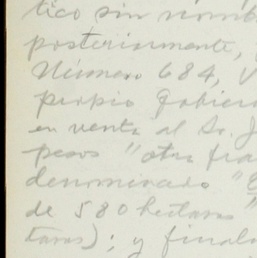 tico sin nomb
posteriormente,
Número 684, V
propio Gobier
en venta al Sr. J
pesos "otra fra
denominado "
de 580 hectaras "
taras); y final